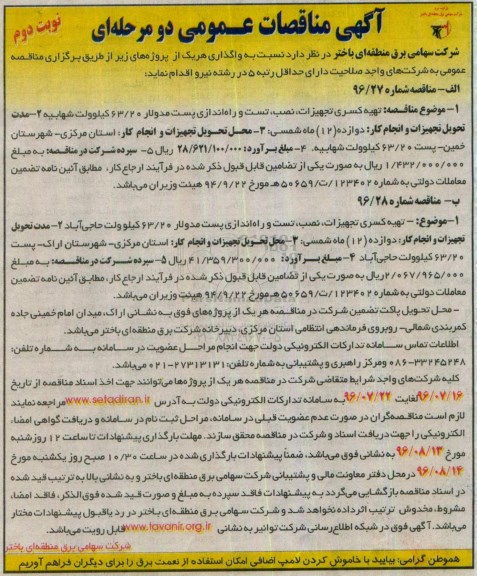 آگهی مناقصات عمومی دو مرحله‌ای
نوبت دوم
شرکت سهامی برق منطقه‌ای باختر در نظر دارد نسبت به واگذاری هریک از پروژه‌های زیر از طریق برگزاری مناقصه
عمومی به شرکت‌های واجد صلاحیت دارای حداقل رتبه ۵ در رشته نیرو اقدام نماید:
الف- مناقصه شماره ۹۶/۲۷
۱- موضوع مناقصه: تهیه کسری تجهیزات، نصب، تست و راه‌اندازی پست مدولار ۶۳/۲۰ کیلوولت شهابیه ۲- مدت
تحویل تجهیزات و انجام کار: دوازده (۱۲) ماه شمسی: ۳- محل تحویل تجهیزات و انجام کار: استان مرکزی- شهرستان
خمین- پست ۶۳/۲۰ کیلوولت شهابیه. ۴- مبلغ برآورد: ۲۸/۶۲۱/۱۰۰/۰۰۰ ریال ۵- سپرده شرکت در مناقصه: به مبلغ
۱/۴۳۲/۰۰۰/۰۰۰ ریال به صورت یکی از تضامین قابل قبول ذکر شده در فرآیند ارجاع کار، مطابق آئین نامه تضمین
معاملات دولتی به شماره ۱۲۳۴۰۲/ت۵۰۶۵۹هـ مورخ ۹۴/۹/۲۲ هیئت وزیران می‌باشد.
ب- مناقصه شماره ۹۶/۲۸
۱- موضوع: - تهیه کسری تجهیزات، نصب، تست و راه‌اندازی پست مدولار ۶۳/۲۰ کیلوولت حاجی‌آباد ۲- مدت تحویل
تجهیزات و انجام کار: دوازده (۱۲) ماه شمسی: ۳- محل تحویل تجهیزات و انجام کار: استان مرکزی- شهرستان اراک- پست
۶۳/۲۰ کیلوولت حاجی‌آباد ۴- مبلغ برآورد: ۴۱/۳۵۹/۳۰۰/۰۰۰ ریال ۵- سپرده شرکت در مناقصه: به مبلغ
۲/۰۶۷/۹۶۵/۰۰۰ ریال به صورت یکی از تضامین قابل قبول ذکر شده در فرآیند ارجاع کار، مطابق آئین نامه تضمین
معاملات دولتی به شماره ۱۲۳۴۰۲/ت۵۰۶۵۹هـ مورخ ۹۴/۹/۲۲ هیئت وزیران می‌باشد.
- محل تحویل پاکت تضمین شرکت در مناقصه هر یک از پروژه‌های فوق به نشانی اراک، میدان امام خمینی جاده
کمربندی شمالی- روبروی فرماندهی انتظامی استان مرکزی، دبیرخانه شرکت برق منطقه‌ای باختر می‌باشد.
اطلاعات تماس سامانه تدارکات الکترونیکی دولت جهت انجام مراحل عضویت در سامانه به شماره تلفن:
۳۳۲۴۵۲۴۸-۰۸۶ و مرکز راهبری و پشتیبانی به شماره تلفن: ۲۷۳۱۳۱۳۱-۰۲۱ می‌باشد.
کلیه شرکت‌های واجد شرایط متقاضی شرکت در مناقصه هر یک از پروژه‌ها می‌توانند جهت اخذ اسناد مناقصه از تاریخ
۹۶/۰۷/۱۶ لغایت ۹۶/۰۷/۲۲ به سامانه تدارکات الکترونیکی دولت به آدرس www.setadiran.ir مراجعه نمایند
لازم است مناقصه‌گران در صورت عدم عضویت قبلی در سامانه، مراحل ثبت نام در سامانه و دریافت گواهی امضاء
الکترونیکی را جهت دریافت اسناد و شرکت در مناقصه محقق سازند. مهلت بارگذاری پیشنهادات تا ساعت ۱۲ روز شنبه
مورخ ۹۶/۰۸/۱۳ به نشانی فوق می‌باشد، ضمناً پیشنهادات بارگذاری شده در ساعت ۱۰/۳۰ صبح روز یکشنبه مورخ
۹۶/۰۸/۱۴ در محل دفتر معاونت مالی و پشتیبانی شرکت سهامی برق منطقه‌ای باختر و به نشانی بالا به ترتیب قید شده
در اسناد مناقصه بازگشایی می‌گردد به پیشنهادات فاقد سپرده به مبلغ و صورت قید شده فوق الذکر، فاقد امضاء،
مشروط، مخدوش ترتیب اثر داده نخواهد شد و شرکت سهامی برق منطقه‌ای باختر در رد یا قبول پیشنهادات مختار
می‌باشد. آگهی فوق در شبکه اطلاع‌رسانی شرکت توانیر به نشانی www.tavanir.org.ir قابل رویت می‌باشد.
شرکت سهامی برق منطقه‌ای باختر
هموطن گرامی: بیایید با خاموش کردن لامپ اضافی امکان استفاده از نعمت برق را برای دیگران فراهم آوریم